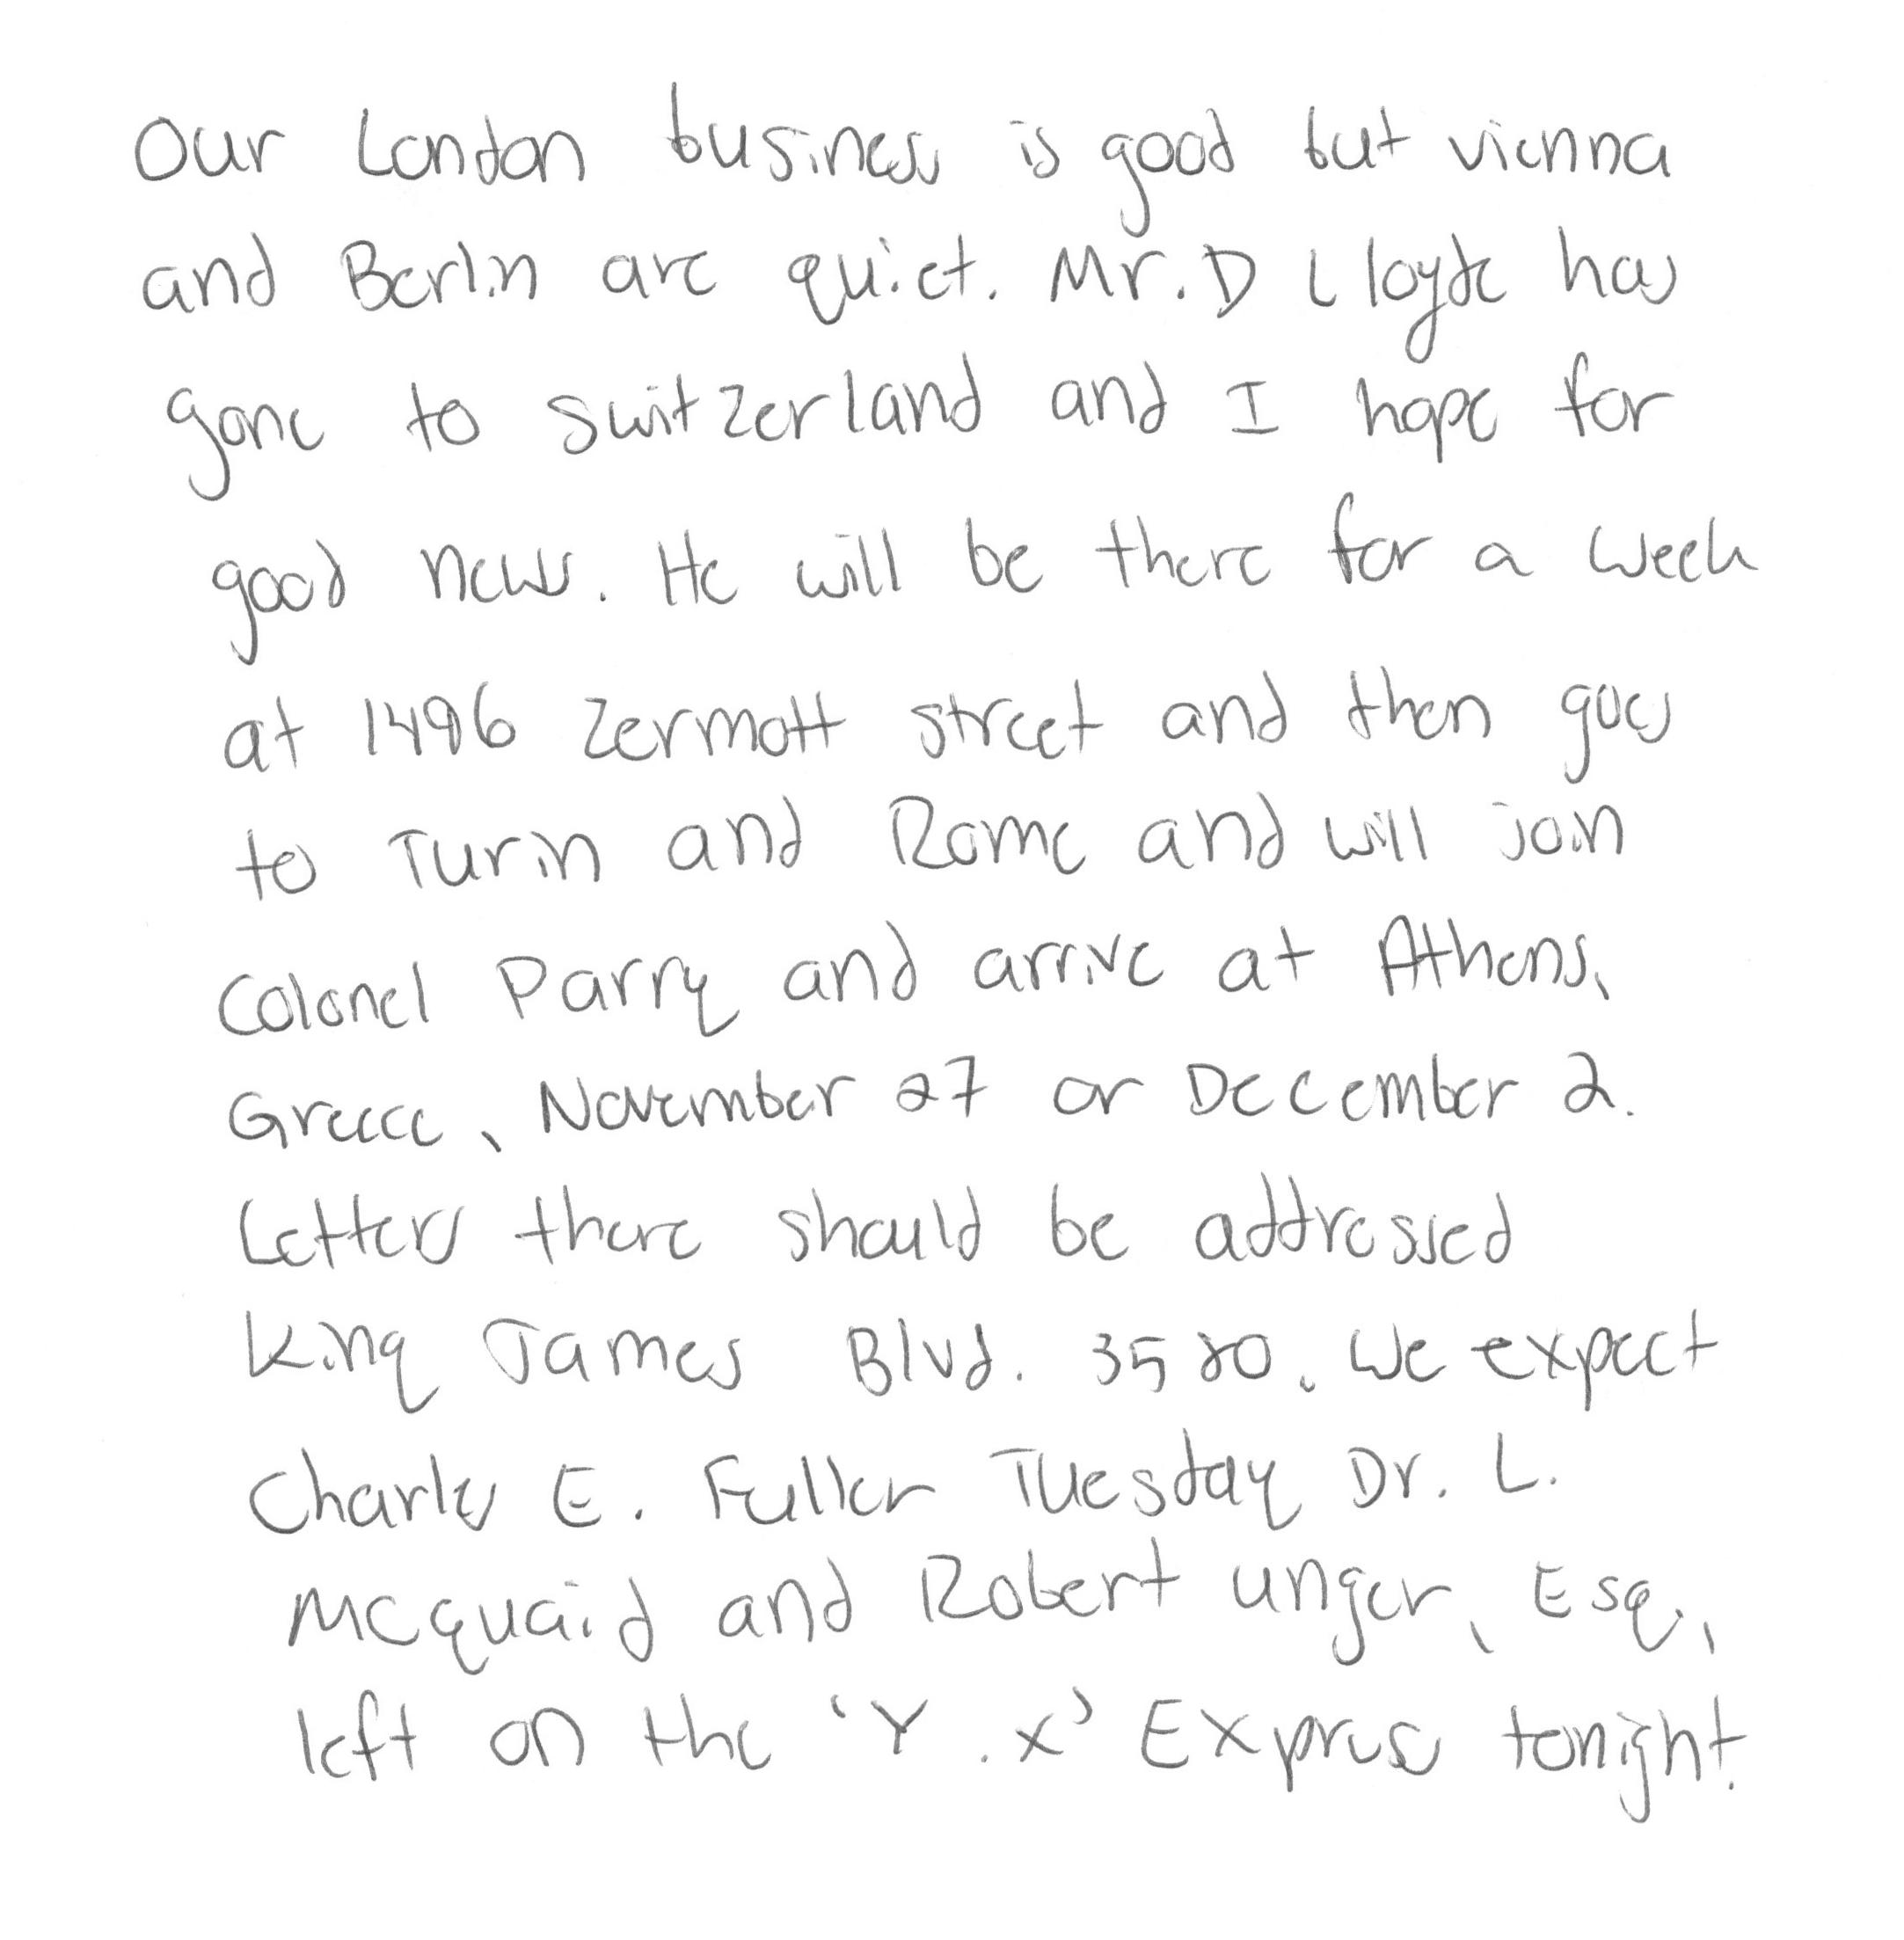 Our London business is good but vienna
and Berlin are quiet. Mr. D Lloyde has
gone to switzerland and I hope for
good news. He will be there for a week
at 1496 Zermott street and then goes
to Turin and Rome and will join
Colonel Parry and arrive at Athens,
Greece, November 27 or December 2.
Letters there should be addressed
King James Blvd. 3580. We expect
Charles E. Fuller Tuesday Dr. L.
McQuaid and Robert unger, Esq.,
left on the 'Y.X' Express tonight.